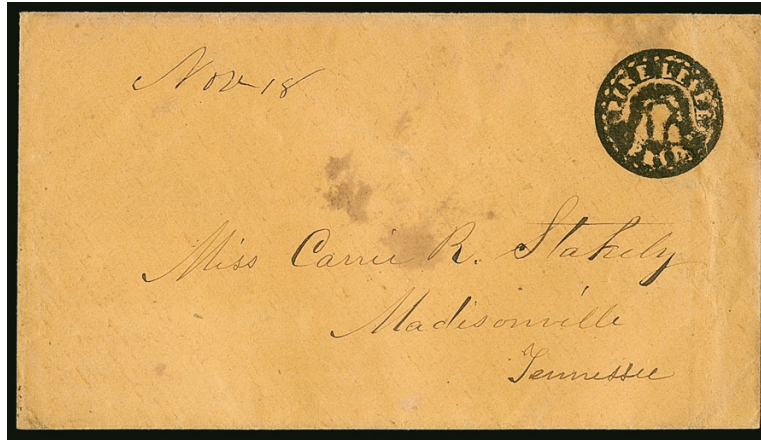 Nov 18
PINE LEVEL
Miss Carrie R. Stakely
Madisonville
Tennessee